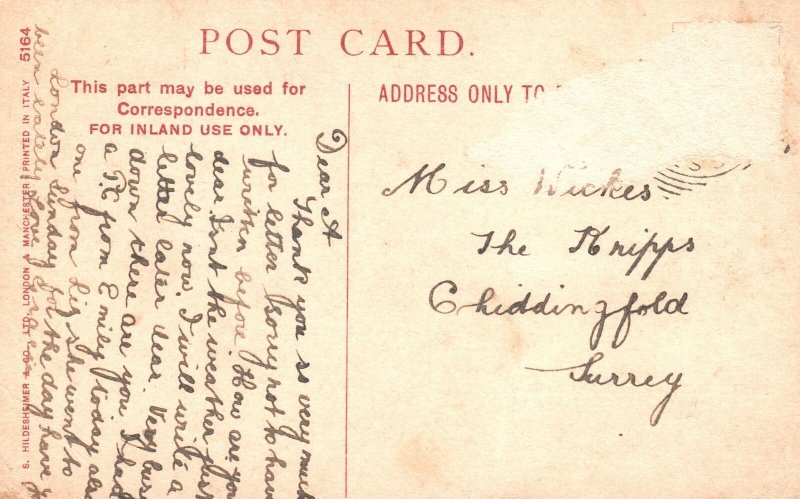 POST CARD.
This part may be used for
Correspondence.
FOR INLAND USE ONLY.
ADDRESS ONLY TO
Miss Wickes
The Knipps
Chiddingfold
Surrey
Dear A
Thank you so very much
for letter. Sorry not to have
written before. How are you
dear Isnt the weather just
lovely now. I will write a
letter later dear. Very busy
down there are you I had
a P.C from Emily today also
one from Liz she went to
London Sunday for the day have
been lately Love
S. HILDESHEIMER & CO., LTD. LONDON & MANCHESTER PRINTED IN ITALY 5164